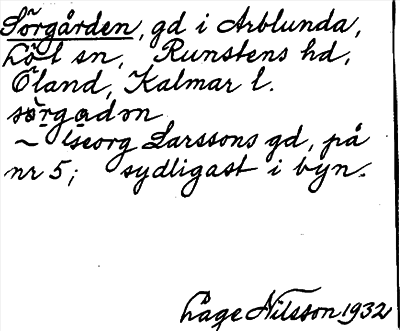 Sörgården, gd i Arblunda,
Löt sn, Runstens hd,
Öland, Kalmar l.
sörgadαn
~ Georg Larssons gd, på
nr 5; sydligast i byn.
Åage Nilsson 1932